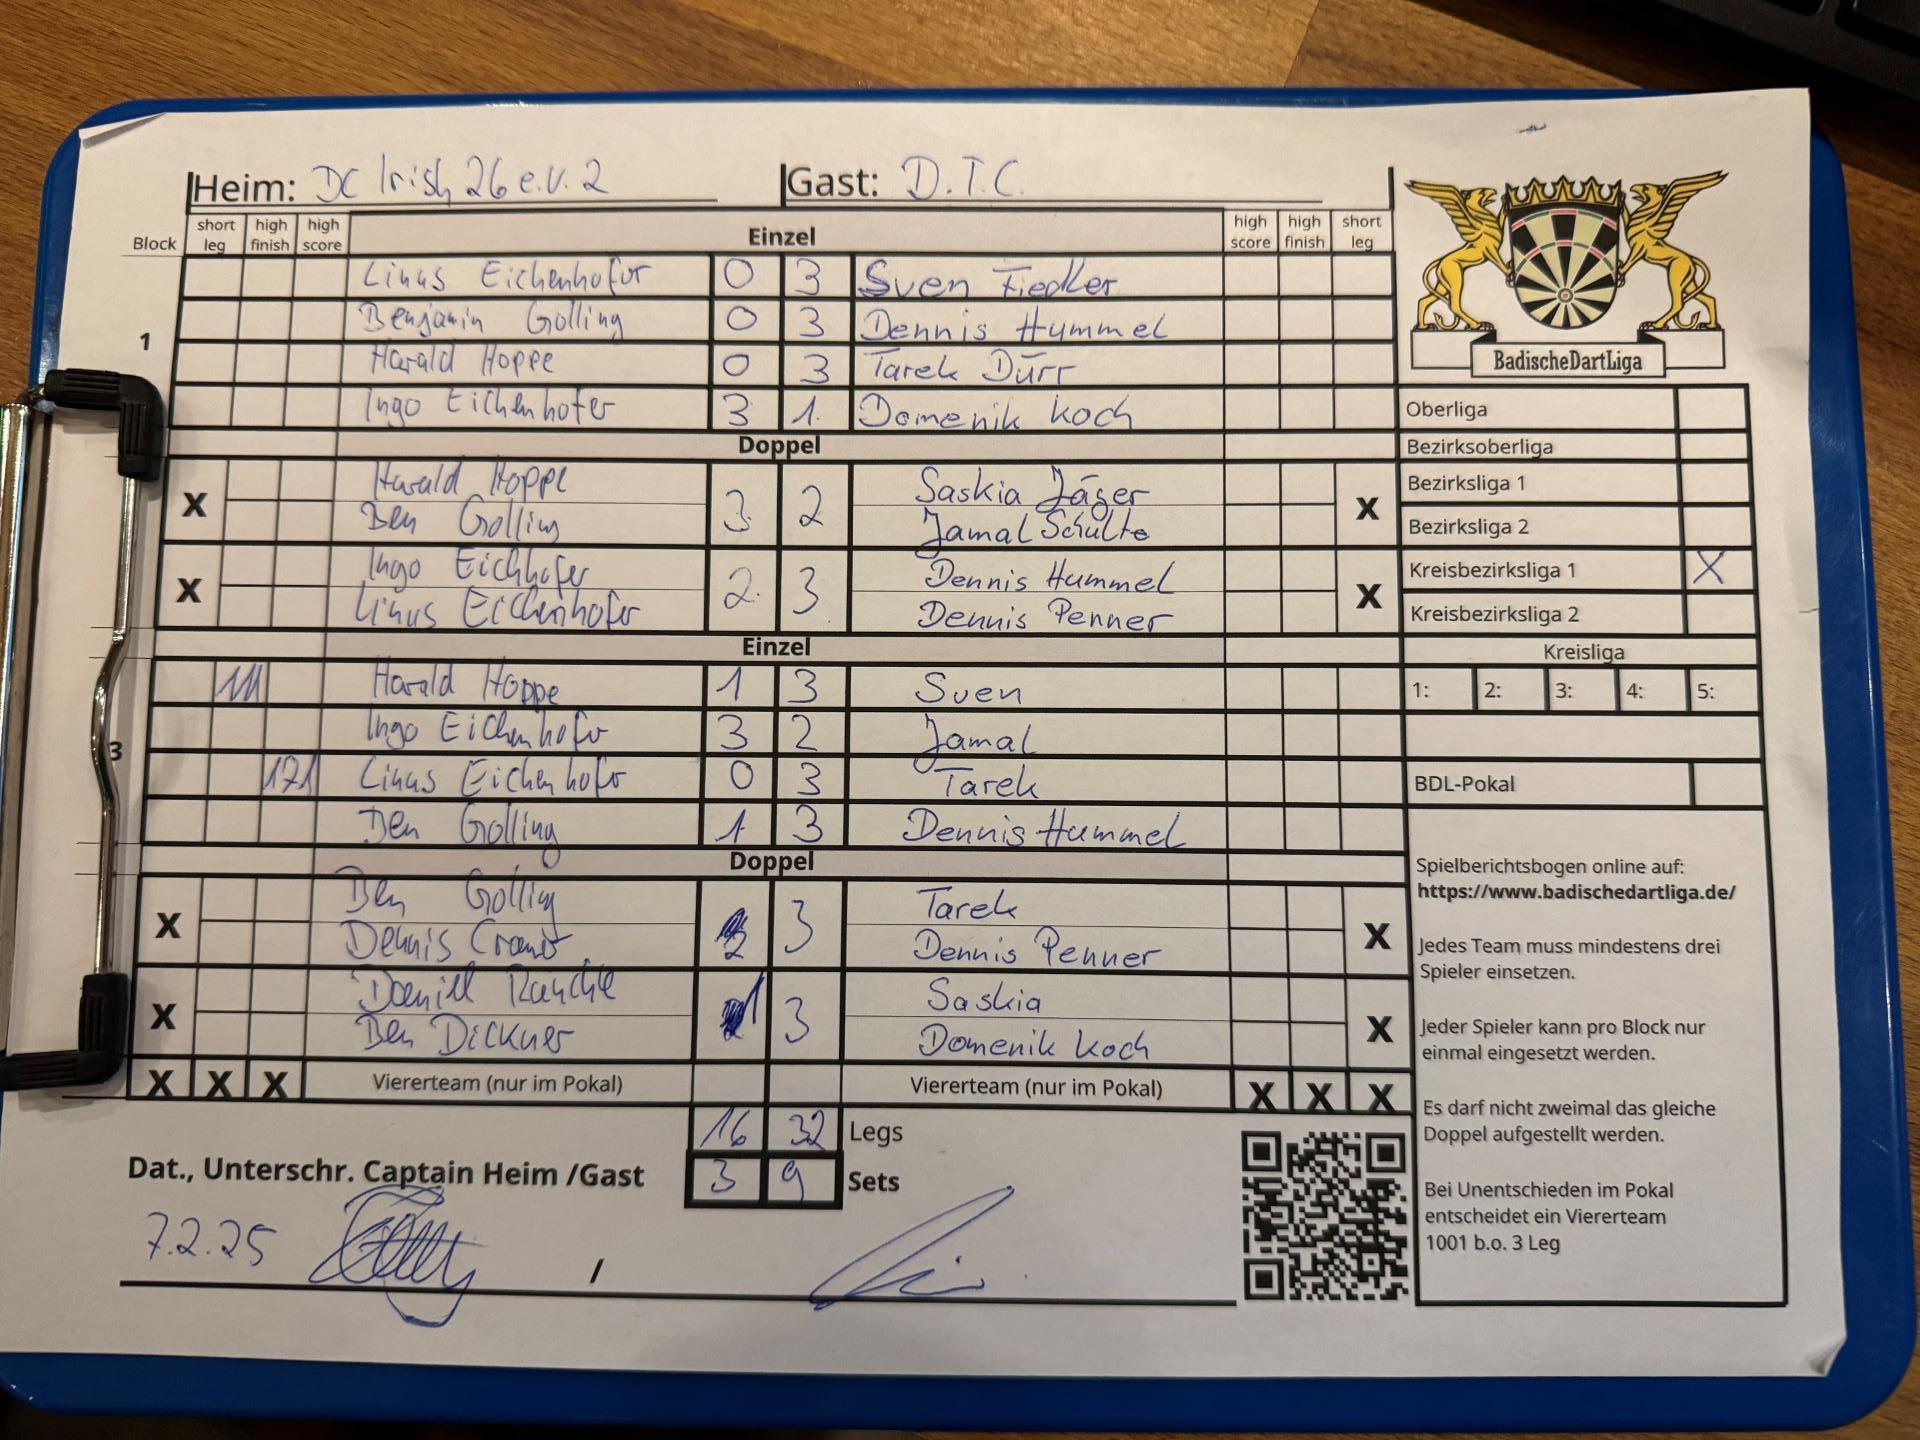 Heim: DC Irish 26 e.V. 2 Gast: D.T.C.
Block short leg high finish high score Einzel high score high finish short leg
Linus Eichenhofer 0 3 Sven Fiedler
Benjamin Golling 0 3 Dennis Hummel
1
Harald Hoppe 0 3 Tarek Dürr
Ingo Eichenhofer 3 1 Domenik Koch
Doppel
Harald Hoppe Saskia Jäger
X 3 2 X
Ben Golling Jamal Schulte
Ingo Eichhofer Dennis Hummel
X 2 3 X
Linus Eichenhofer Dennis Penner
Einzel
111 Harald Hoppe 1 3 Sven
Ingo Eichenhofer 3 2 Jamal
3
171 Linus Eichenhofer 0 3 Tarek
Ben Golling 1 3 Dennis Hummel
Doppel
Ben Golling Tarek
X 2 3 X
Dennis Dennis Penner
Daniel Saskia
X 1 3 X
Ben Dickner Domenik Koch
X X X Viererteam (nur im Pokal) Viererteam (nur im Pokal) X X X
16 32 Legs
Dat., Unterschr. Captain Heim /Gast 3 9 Sets
7.2.25 /
BadischeDartLiga
Oberliga
Bezirksoberliga
Bezirksliga 1
Bezirksliga 2
Kreisbezirksliga 1 X
Kreisbezirksliga 2
Kreisliga
1: 2: 3: 4: 5:
BDL-Pokal
Spielberichtsbogen online auf:
https://www.badischedartliga.de/
Jedes Team muss mindestens drei
Spieler einsetzen.
Jeder Spieler kann pro Block nur
einmal eingesetzt werden.
Es darf nicht zweimal das gleiche
Doppel aufgestellt werden.
Bei Unentschieden im Pokal
entscheidet ein Viererteam
1001 b.o. 3 Leg